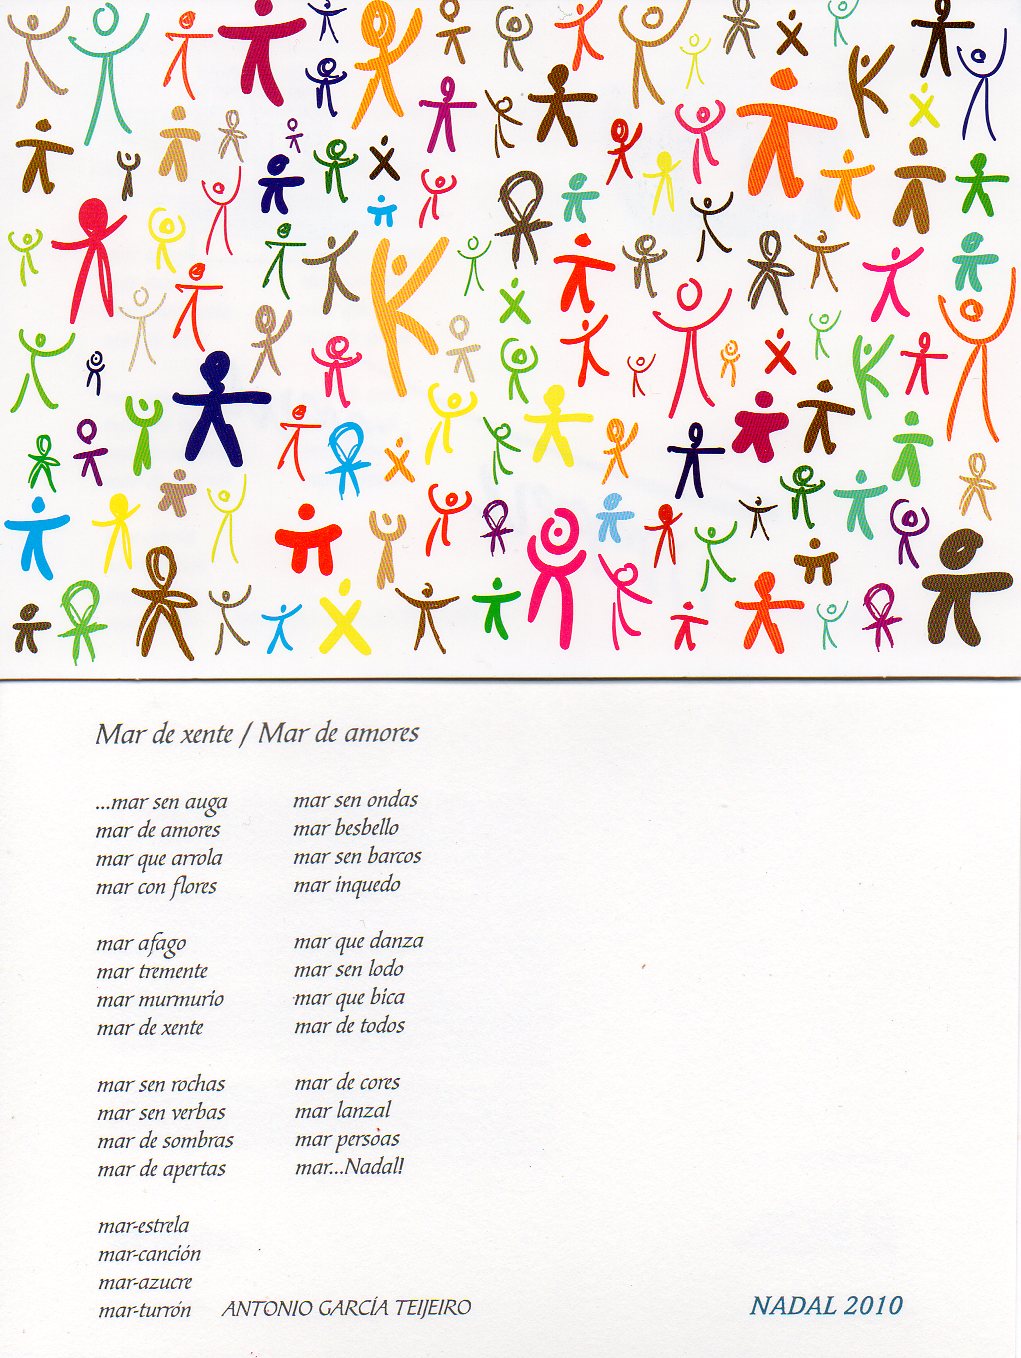 Mar de xente / Mar de amores
...mar sen auga
mar de amores
mar que arrola
mar con flores
mar afago
mar tremente
mar murmurio
mar de xente
mar sen rochas
mar sen verbas
mar de sombras
mar de apertas
mar-estrela
mar-canción
mar-azucre
mar-turrón
mar sen ondas
mar besbello
mar sen barcos
mar inquedo
mar que danza
mar sen lodo
mar que bica
mar de todos
mar de cores
mar lanzal
mar persoas
mar...Nadal!
ANTONIO GARCÍA TEIJEIRO
NADAL 2010